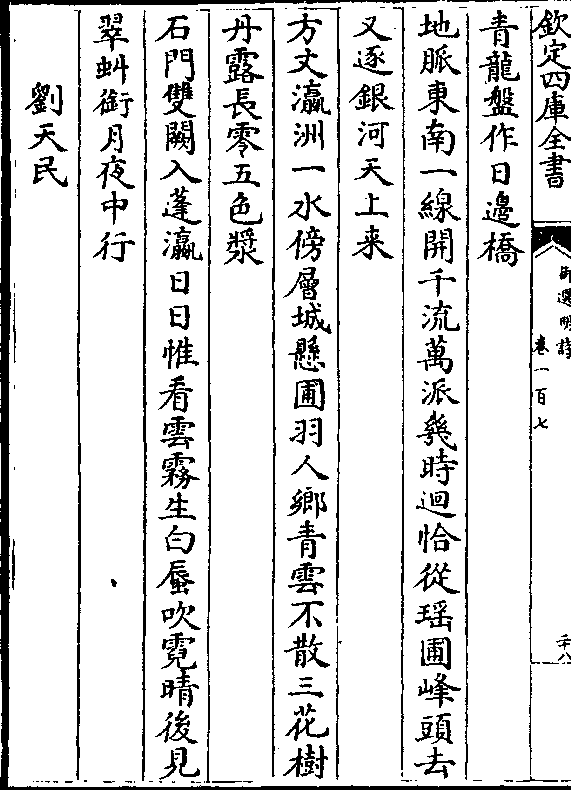 欽定四庫全書
御選明詩
卷一百七
二十八
青龍盤作日邊橋
地脈東南一線開千流萬派幾時迴恰從瑶圃峰頭去
又逐銀河天上来
方丈瀛洲一水傍層城懸圃羽人鄉青雲不散三花樹
丹露長零五色漿
石門雙闕入蓬瀛日日惟看雲霧生白蜃吹霓晴後見
翠虯銜月夜中行
劉天民